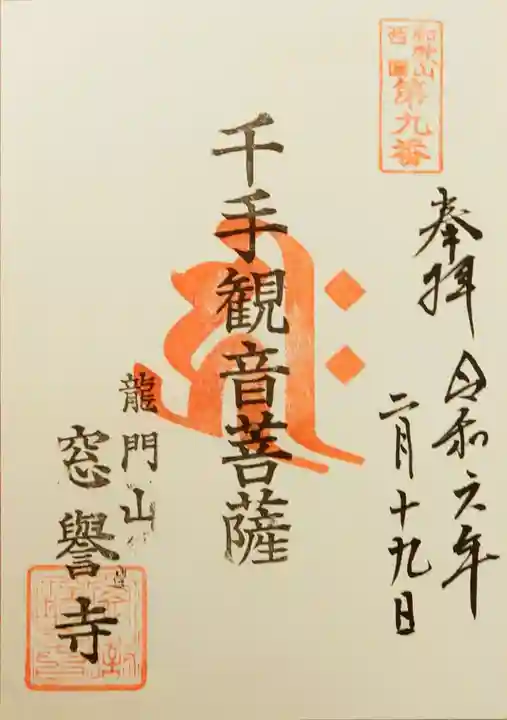 和歌山
西国
第九番
奉拝 令和六年
二月十九日
千手観音菩薩
龍門山
窓譽寺